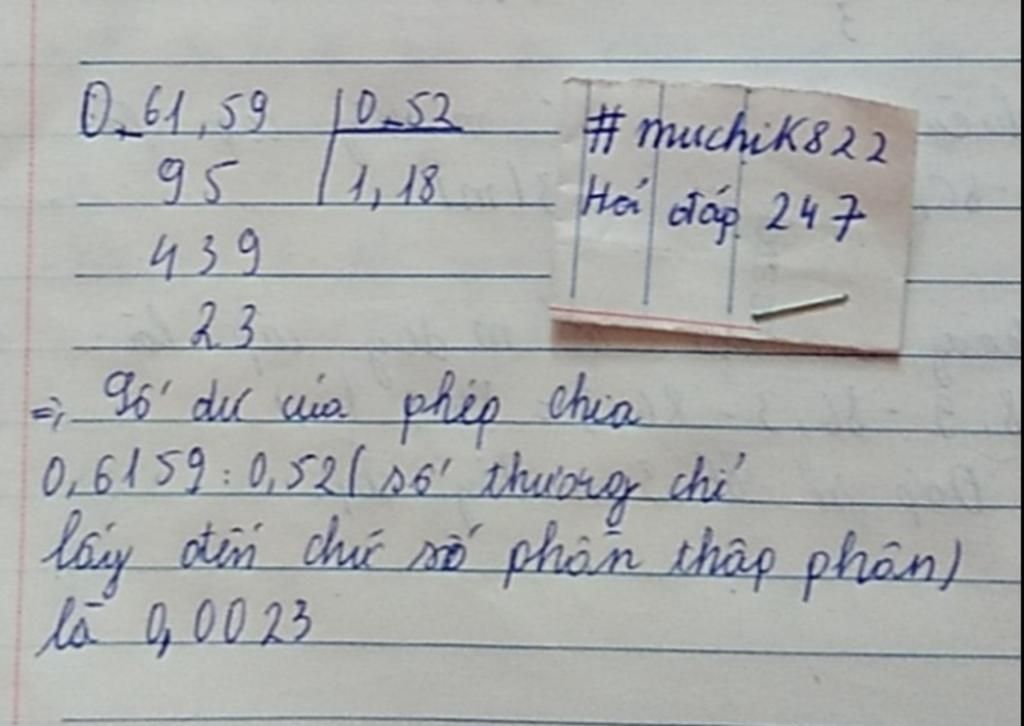 0,61,59 0,52
95 1,18
439
23
#muchiK822
Hỏi đáp 247
=> Số dư của phép chia
0,6159 : 0,52 ( số thương chỉ
lấy đến chữ số phần thập phân)
là 0,0023